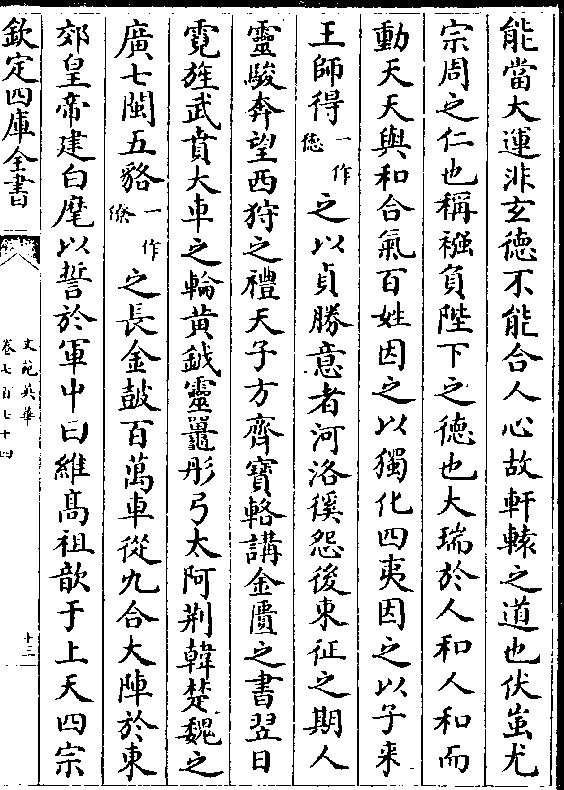 能當大運非玄德不能合人心故軒轅之道也伏蚩尤
宗周之仁也稱襁負陛下之德也大瑞於人和人和而
動天天與和合氣百姓因之以獨化四夷因之以子来
王師得一作德之以貞勝意者河洛徯怨後東征之期人
靈駿奔望西狩之禮天子方齊寳輅講金匱之書翌日
霓旌武賁大車之輪黄鉞靈鼉彤弓太阿荆韓楚魏之
廣七閩五貉一作獠之長金鼓百萬車從九合大陣於東
郊皇帝建白麾以誓於軍中曰維髙祖歆于上天四宗
欽定四庫全書
文苑英華
卷七百七十四
十三